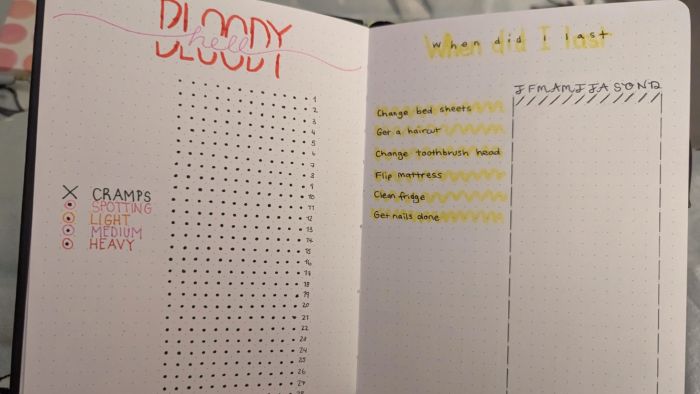 BLOODY
hell
1
2
3
4
5
6
7
8
9
10
11
12
13
14
15
16
17
18
19
20
21
22
23
24
25
26
27
CRAMPS
SPOTTING
LIGHT
MEDIUM
HEAVY
when did I last
J F M A M J J A S O N D
Change bed sheets
Get a haircut
Change toothbrush head
Flip mattress
Clean fridge
Get nails done